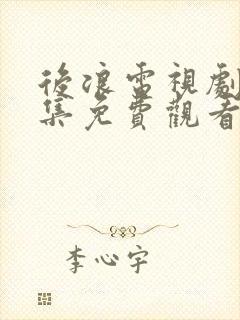 後浪電視劇
集免費觀看
李心宇